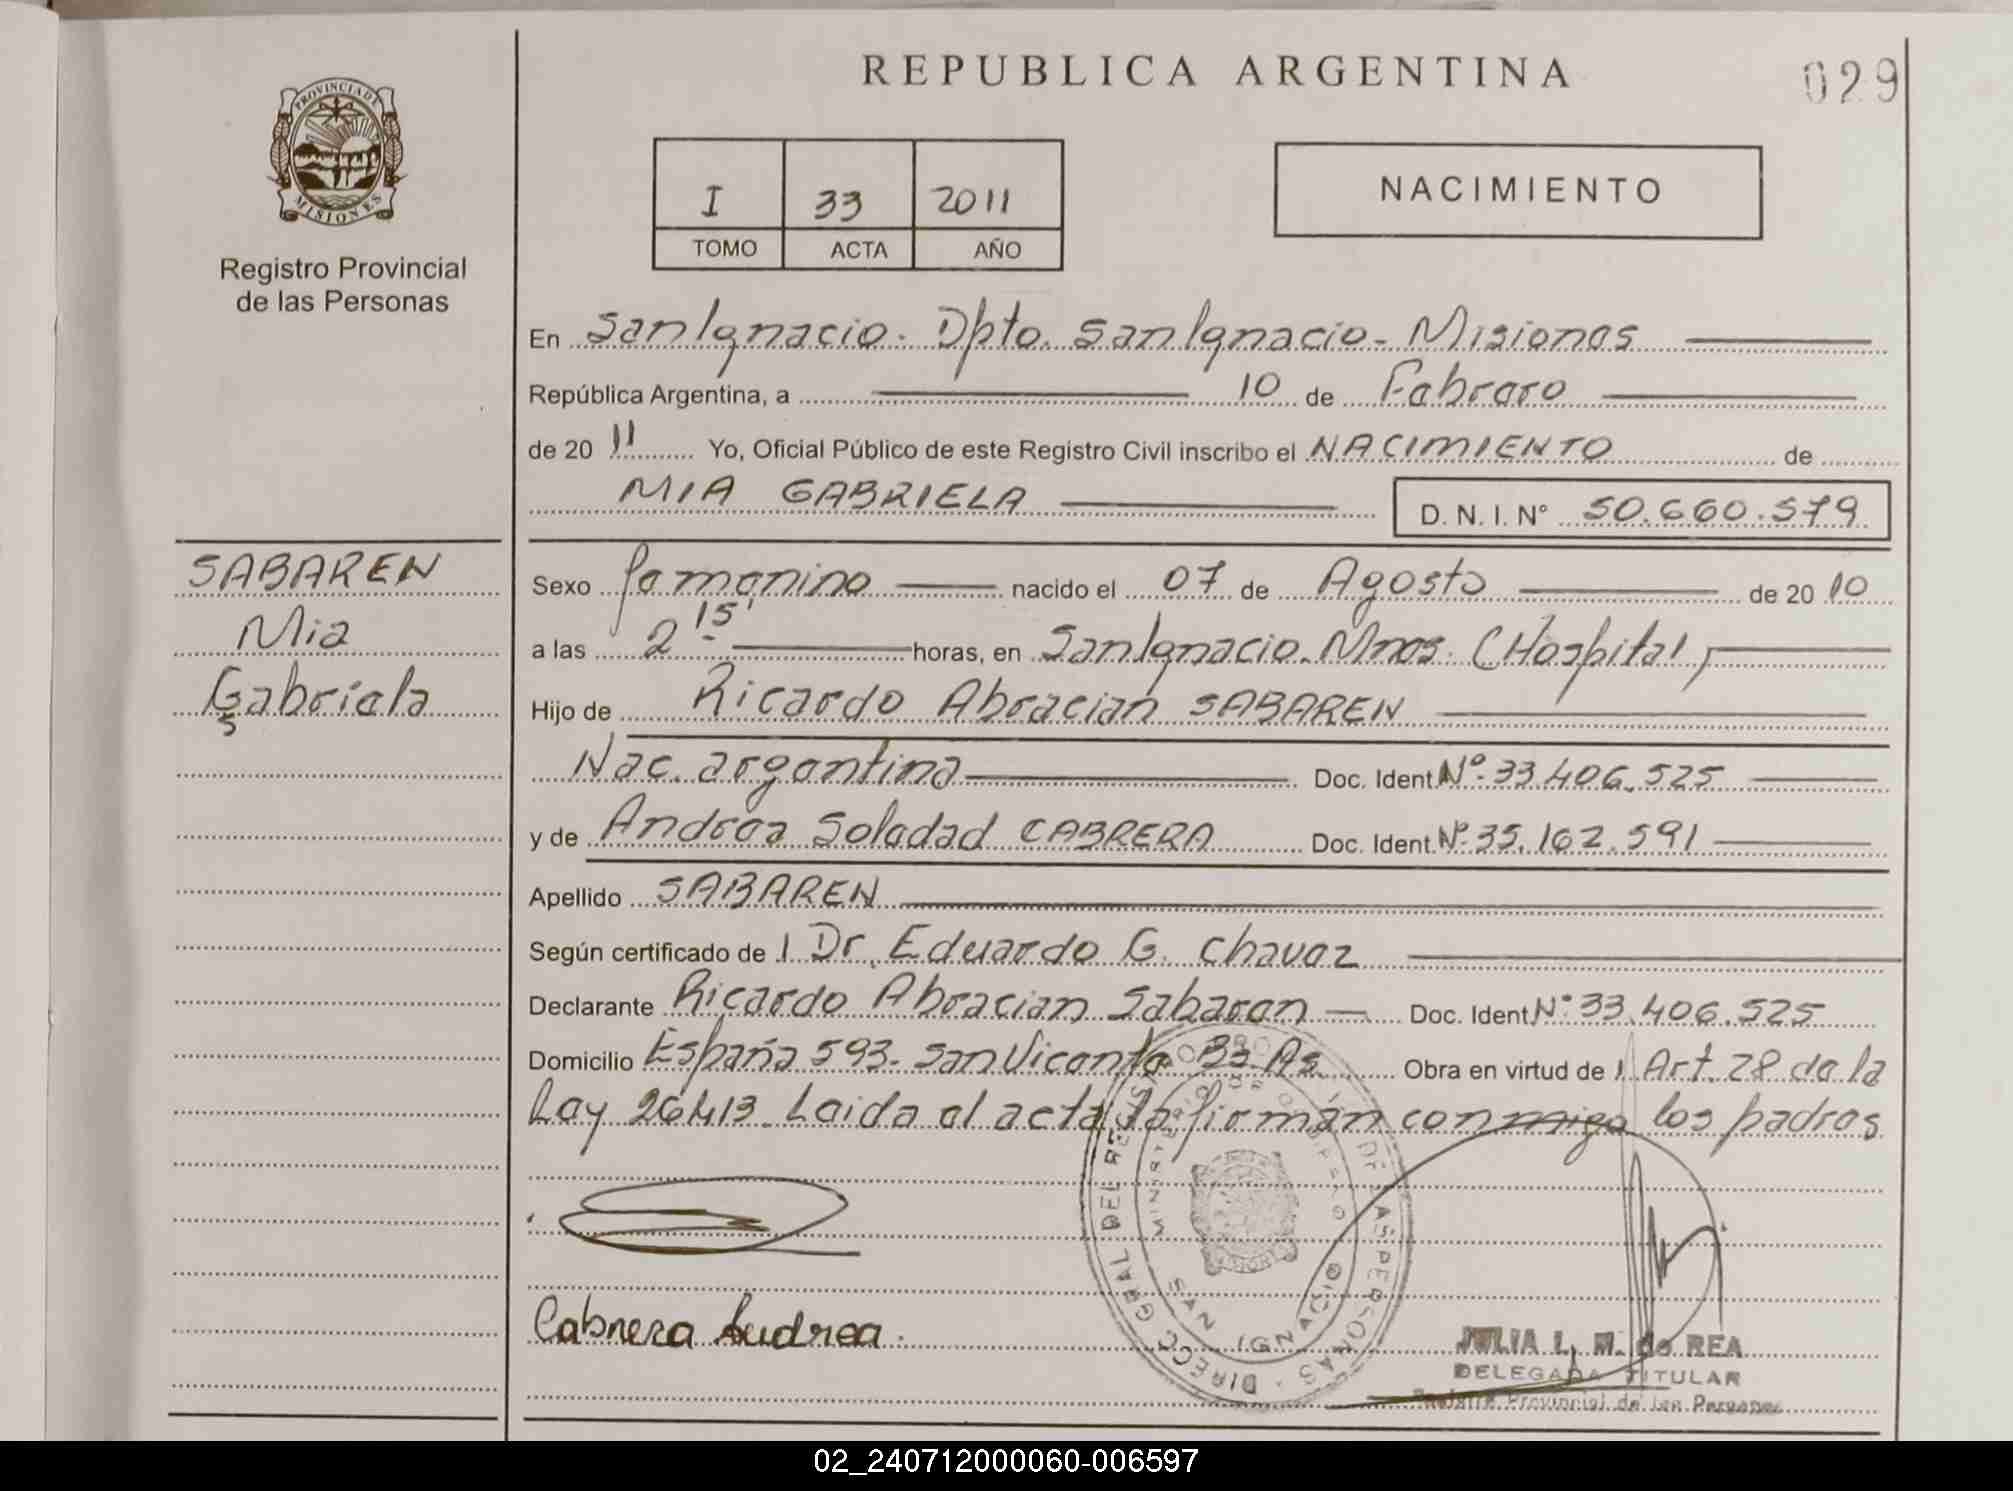 REPUBLICA ARGENTINA
029
PROVINCIA DE
MISIONES
Registro Provincial
de las Personas
I 33 2011
TOMO ACTA AÑO
NACIMIENTO
En San Ignacio. Dpto. San Ignacio. Misiones
República Argentina, a 10 de Febrero
de 2011 Yo, Oficial Público de este Registro Civil inscribo el NACIMIENTO de
MIA GABRIELA D. N. I. N° 50.660.579
SABAREN
Mia
Gabriela
Sexo femenino nacido el 07 de Agosto de 2010
a las 2 15' horas, en San Ignacio. Mnes. (Hospital)
Hijo de Ricardo Abracian SABAREN
Nac. argentina Doc. Ident. Nº. 33.406.525
y de Andrea Soledad CABRERA Doc. Ident. Nº. 35.162.591
Apellido SABAREN
Según certificado de l Dr. Eduardo G. Chavez
Declarante Ricardo Abracian Sabaren Doc. Ident. Nº 33.406.525
Domicilio España 593. San Vicente Bs. As. Obra en virtud de l Art. 28 de la
Ley 26413. Leida el acta la firman conmigo los padres
Cabrera Andrea.
DIRECC GRAL DEL REGISTRO PROV. DE LAS PERSONAS
MINISTERIO DE GOBIERNO
SAN IGNACIO
JULIA L. M. de REA
DELEGADA TITULAR
Registro Provincial de las Personas
02_240712000060-006597